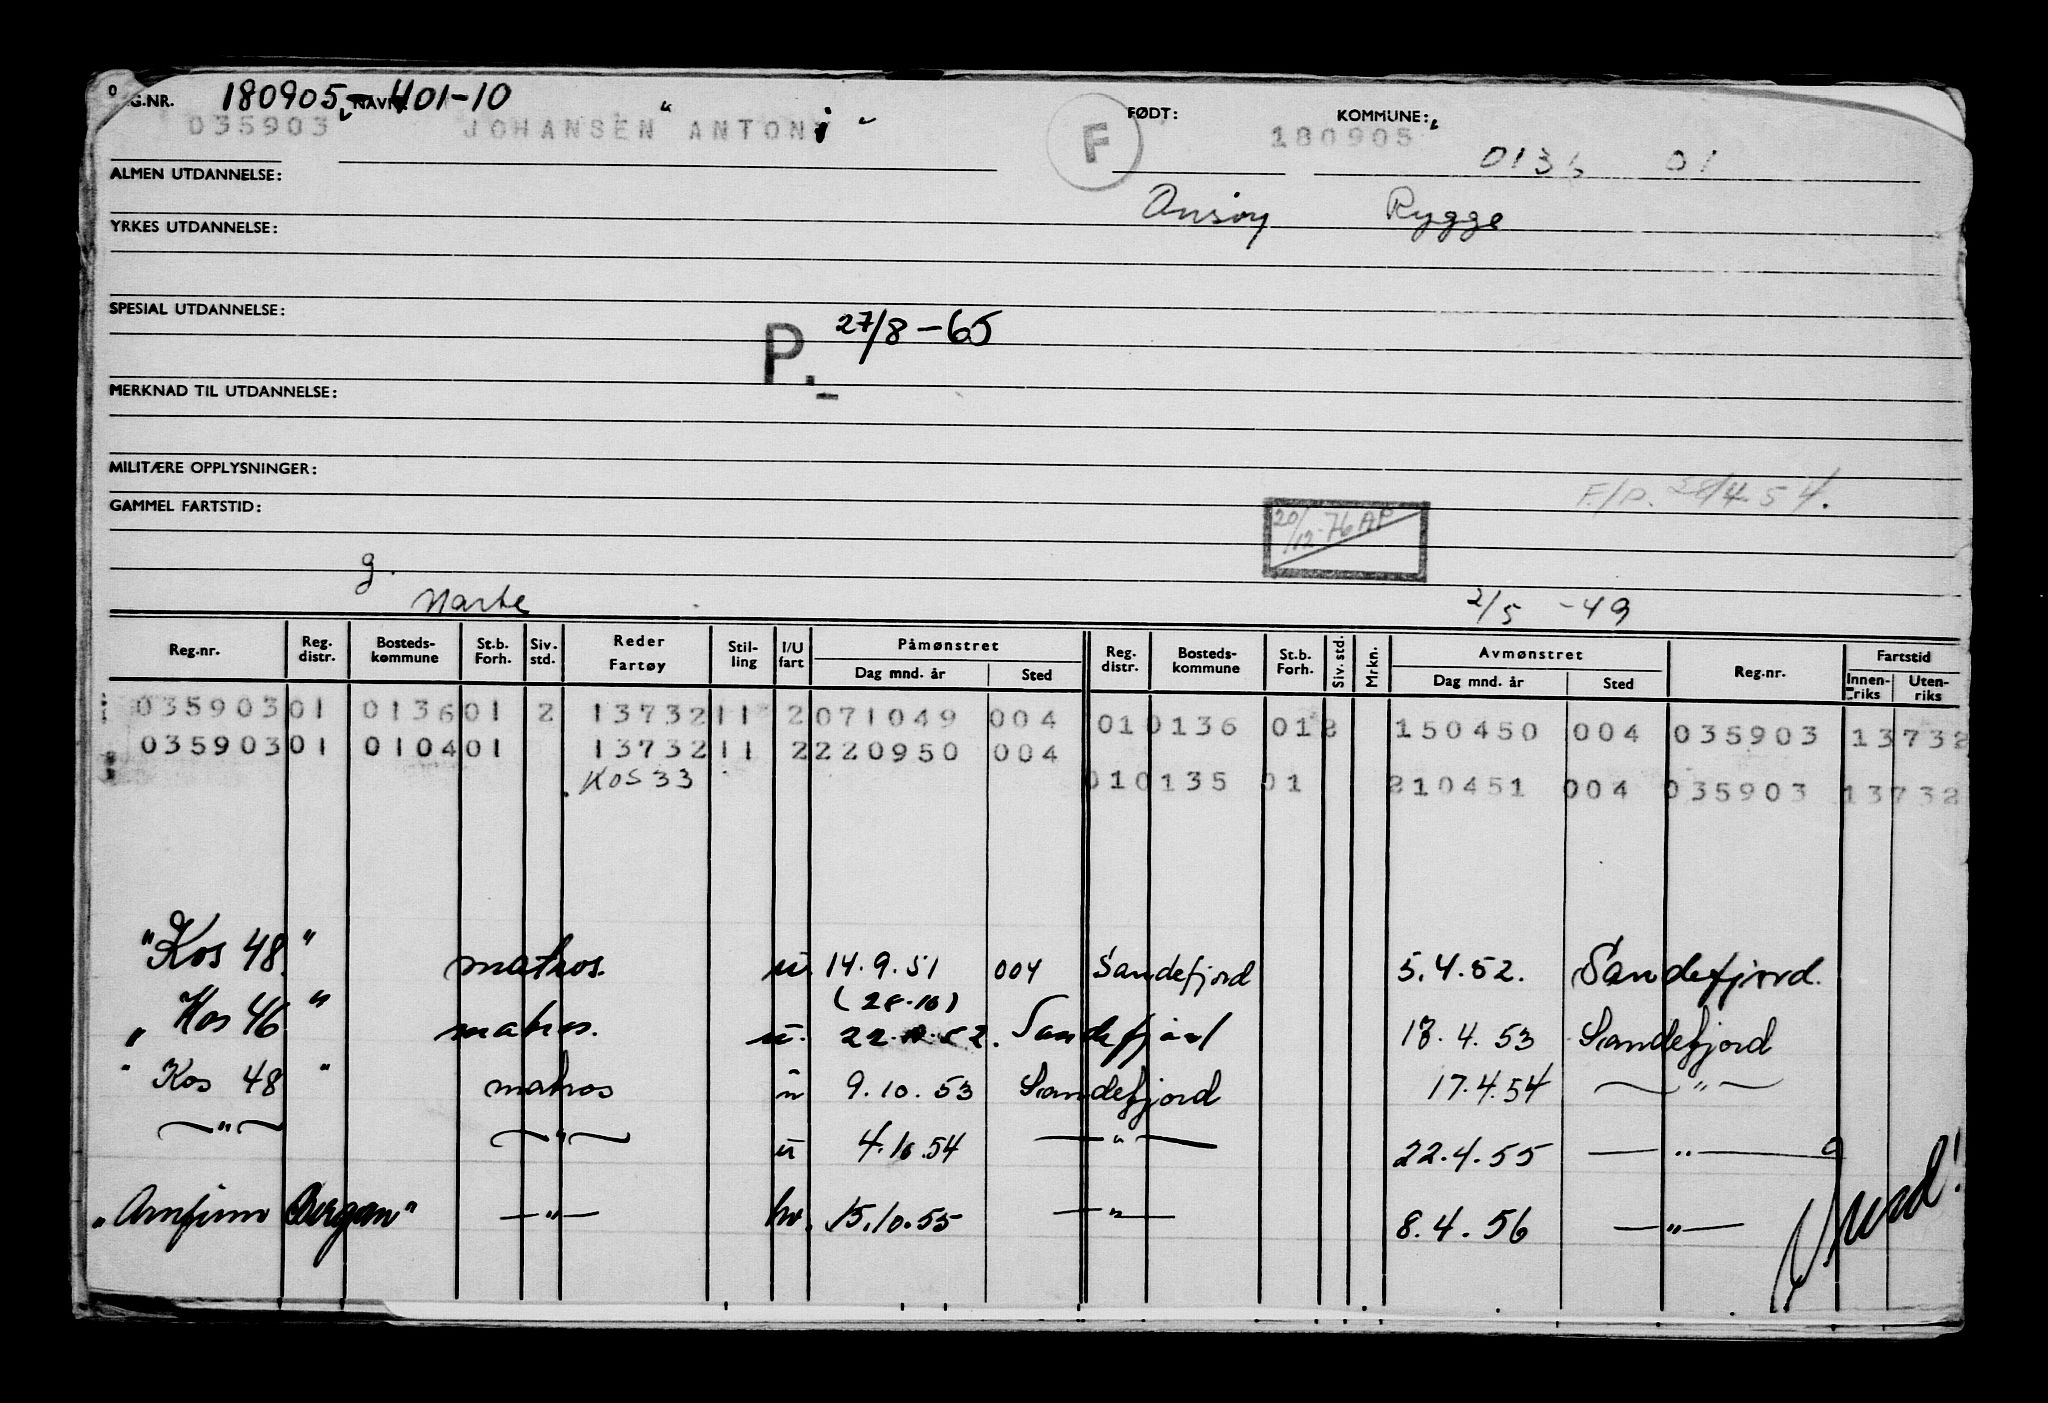 180905-401-10
REG.NR. NAVN: FØDT: KOMMUNE:
035903 JOHANSEN ANTONi F 180905
0136 01
ALMEN UTDANNELSE:
Onsøy Rygge
YRKES UTDANNELSE:
SPESIAL UTDANNELSE:
P. 27/8-65
MERKNAD TIL UTDANNELSE:
MILITÆRE OPPLYSNINGER:
F/P. 28/4 54.
GAMMEL FARTSTID:
20/12-76 AP
g.
Marte 2/5 -49
Reg.nr. Reg. distr. Bosteds-kommune St.b. Forh. Siv. std. Reder Fartøy Stil-ling I/U fart Påmønstret Dag mnd. år Sted Reg. distr. Bosteds-kommune St.b. Forh. Siv. std. Mrkn. Avmønstret Dag mnd. år Sted Reg.nr. Fartstid Innen-riks Uten-riks
035903 01 0136 01 2 13732 11 2 071049 004 01 0136 01 2 150450 004 035903 13732
035903 01 0104 01 13732 11 2 220950 004
KOS 33 01 0135 01 210451 004 035903 13732
"Kos 48" matros. u. 14.9.51 004 Sandefjord 5.4.52. Sandefjord.
(28-10)
"Kos 46" matros. u. 22. .52. Sandefjord 18.4.53 Sandefjord
"Kos 48" matros u 9.10.53 Sandefjord 17.4.54 —"—
—"— —"— u 4.10.54 —"— 22.4.55 —"—
"Arnfinn Bergan" —"— hv. 15.10.55 —"— 8.4.56 —"—